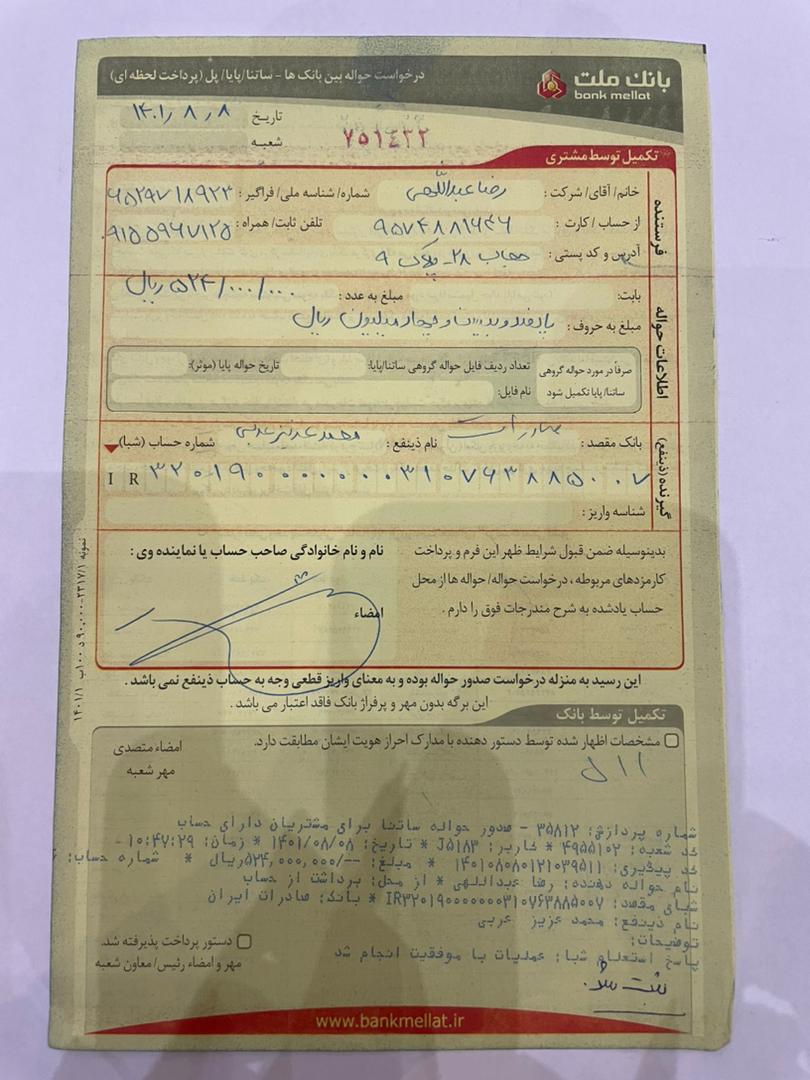 بانک ملت
bank mellat
درخواست حواله بین بانک ها - ساتنا/پایا/پل (پرداخت لحظه ای)
تاریخ ۱۴۰۱٫۸٫۸
شعبه
۷۵۱۴۳۲
تکمیل توسط مشتری
فرستنده
خانم/آقای/شرکت: رضا عبداللهی شماره/شناسه ملی/فراگیر: ۶۵۲۹۷۱۸۹۲۳
از حساب/کارت: ۹۵۷۴۸۸۱۶۴۶ تلفن ثابت/همراه: ۹۱۵۵۹۶۷۱۲۵
آدرس و کد پستی: حجاب ۲۸- پلاک ۹
اطلاعات حواله
بابت: مبلغ به عدد: ۵۲۴/۰۰۰/۰۰۰ ریال
مبلغ به حروف: پانصد و بیست و چهار میلیون ریال
صرفاً در مورد حواله گروهی ساتنا/پایا تکمیل شود
تعداد ردیف فایل حواله گروهی ساتنا/پایا: تاریخ حواله پایا (موثر):
نام فایل:
گیرنده (ذینفع)
بانک مقصد: صادرات نام ذینفع: محمد عزیز عربی شماره حساب (شبا)
IR ۳۲۰۱۹۰۰۰۰۰۰۰۰۳۱۰۷۶۳۸۸۵۰۰۷
شناسه واریز:
بدینوسیله ضمن قبول شرایط ظهر این فرم و پرداخت
کارمزدهای مربوطه، درخواست حواله/حواله ها از محل
حساب یادشده به شرح مندرجات فوق را دارم.
نام و نام خانوادگی صاحب حساب یا نماینده وی:
امضاء
این رسید به منزله درخواست صدور حواله بوده و به معنای واریز قطعی وجه به حساب ذینفع نمی باشد.
این برگه بدون مهر و پرفراژ بانک فاقد اعتبار می باشد.
تکمیل توسط بانک
مشخصات اظهار شده توسط دستور دهنده با مدارک احراز هویت ایشان مطابقت دارد.
امضاء متصدی
مهر شعبه
شماره پردازش: ۳۵۸۱۲ - صدور حواله ساتنا برای مشتریان دارای حساب
کد شعبه: ۴۹۵۵۱۰۲ * کاربر: J۵۱۸۳ * تاریخ: ۱۴۰۱/۰۸/۰۸ * زمان: ۱۰:۴۷:۲۹
کد پیگیری: ۱۴۰۱۰۸۰۸۰۱۲۱۰۳۹۵۱۱ * مبلغ: --/۵۲۴,۰۰۰,۰۰۰ریال * شماره حساب:
نام حواله دهنده: رضا عبداللهی * از محل: برداشت از حساب
شبای مقصد: IR۳۲۰۱۹۰۰۰۰۰۰۰۰۳۱۰۷۶۳۸۸۵۰۰۷ * بانک: صادرات ایران
نام ذینفع: محمد عزیز عربی
توضیحات:
پاسخ استعلام شبا: عملیات با موفقیت انجام شد
ثبت شد.
دستور پرداخت پذیرفته شد.
مهر و امضاء رئیس/معاون شعبه
www.bankmellat.ir